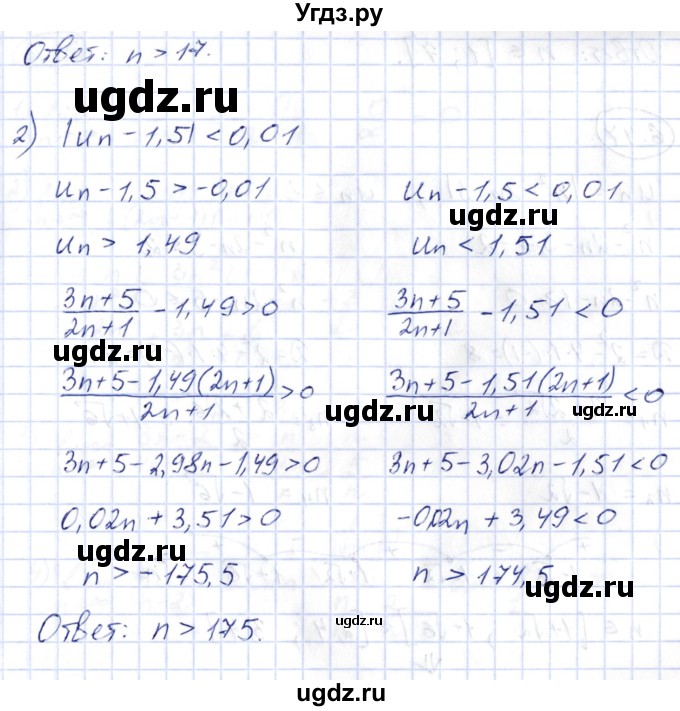 Угдз.ру
Ответ: n > 17.
ugdz.ru
2) |un - 1,5| < 0,01
un - 1,5 > -0,01
un - 1,5 < 0,01
ugdz.ru
un > 1,49
un < 1,51
(3n+5)/(2n+1) - 1,49 > 0
(3n+5)/(2n+1) - 1,51 < 0
ugdz.ru
(3n+5-1,49(2n+1))/(2n+1) > 0
(3n+5-1,51(2n+1))/(2n+1) < 0
ugdz.ru
ugdz.ru
3n+5-2,98n-1,49>0
3n+5-3,02n-1,51<0
0,02n + 3,51 > 0
-0,02n + 3,49 < 0
ugdz.ru
n > -175,5
n > 174,5
ugdz.ru
Ответ: n > 175.
ugdz.ru
ugdz.ru